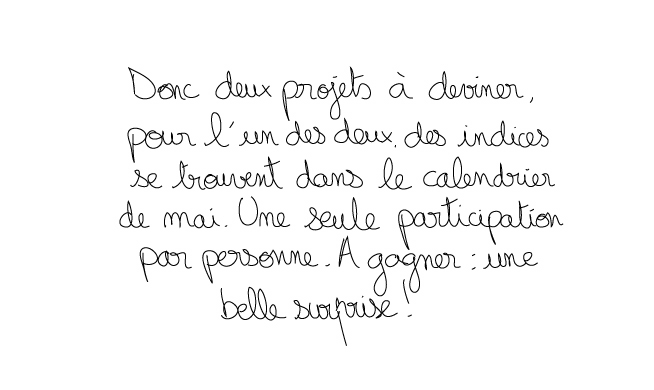 Donc deux projets à deviner,
pour l'un des deux, des indices
se trouvent dans le calendrier
de mai. Une seule participation
par personne. A gagner : une
belle surprise !